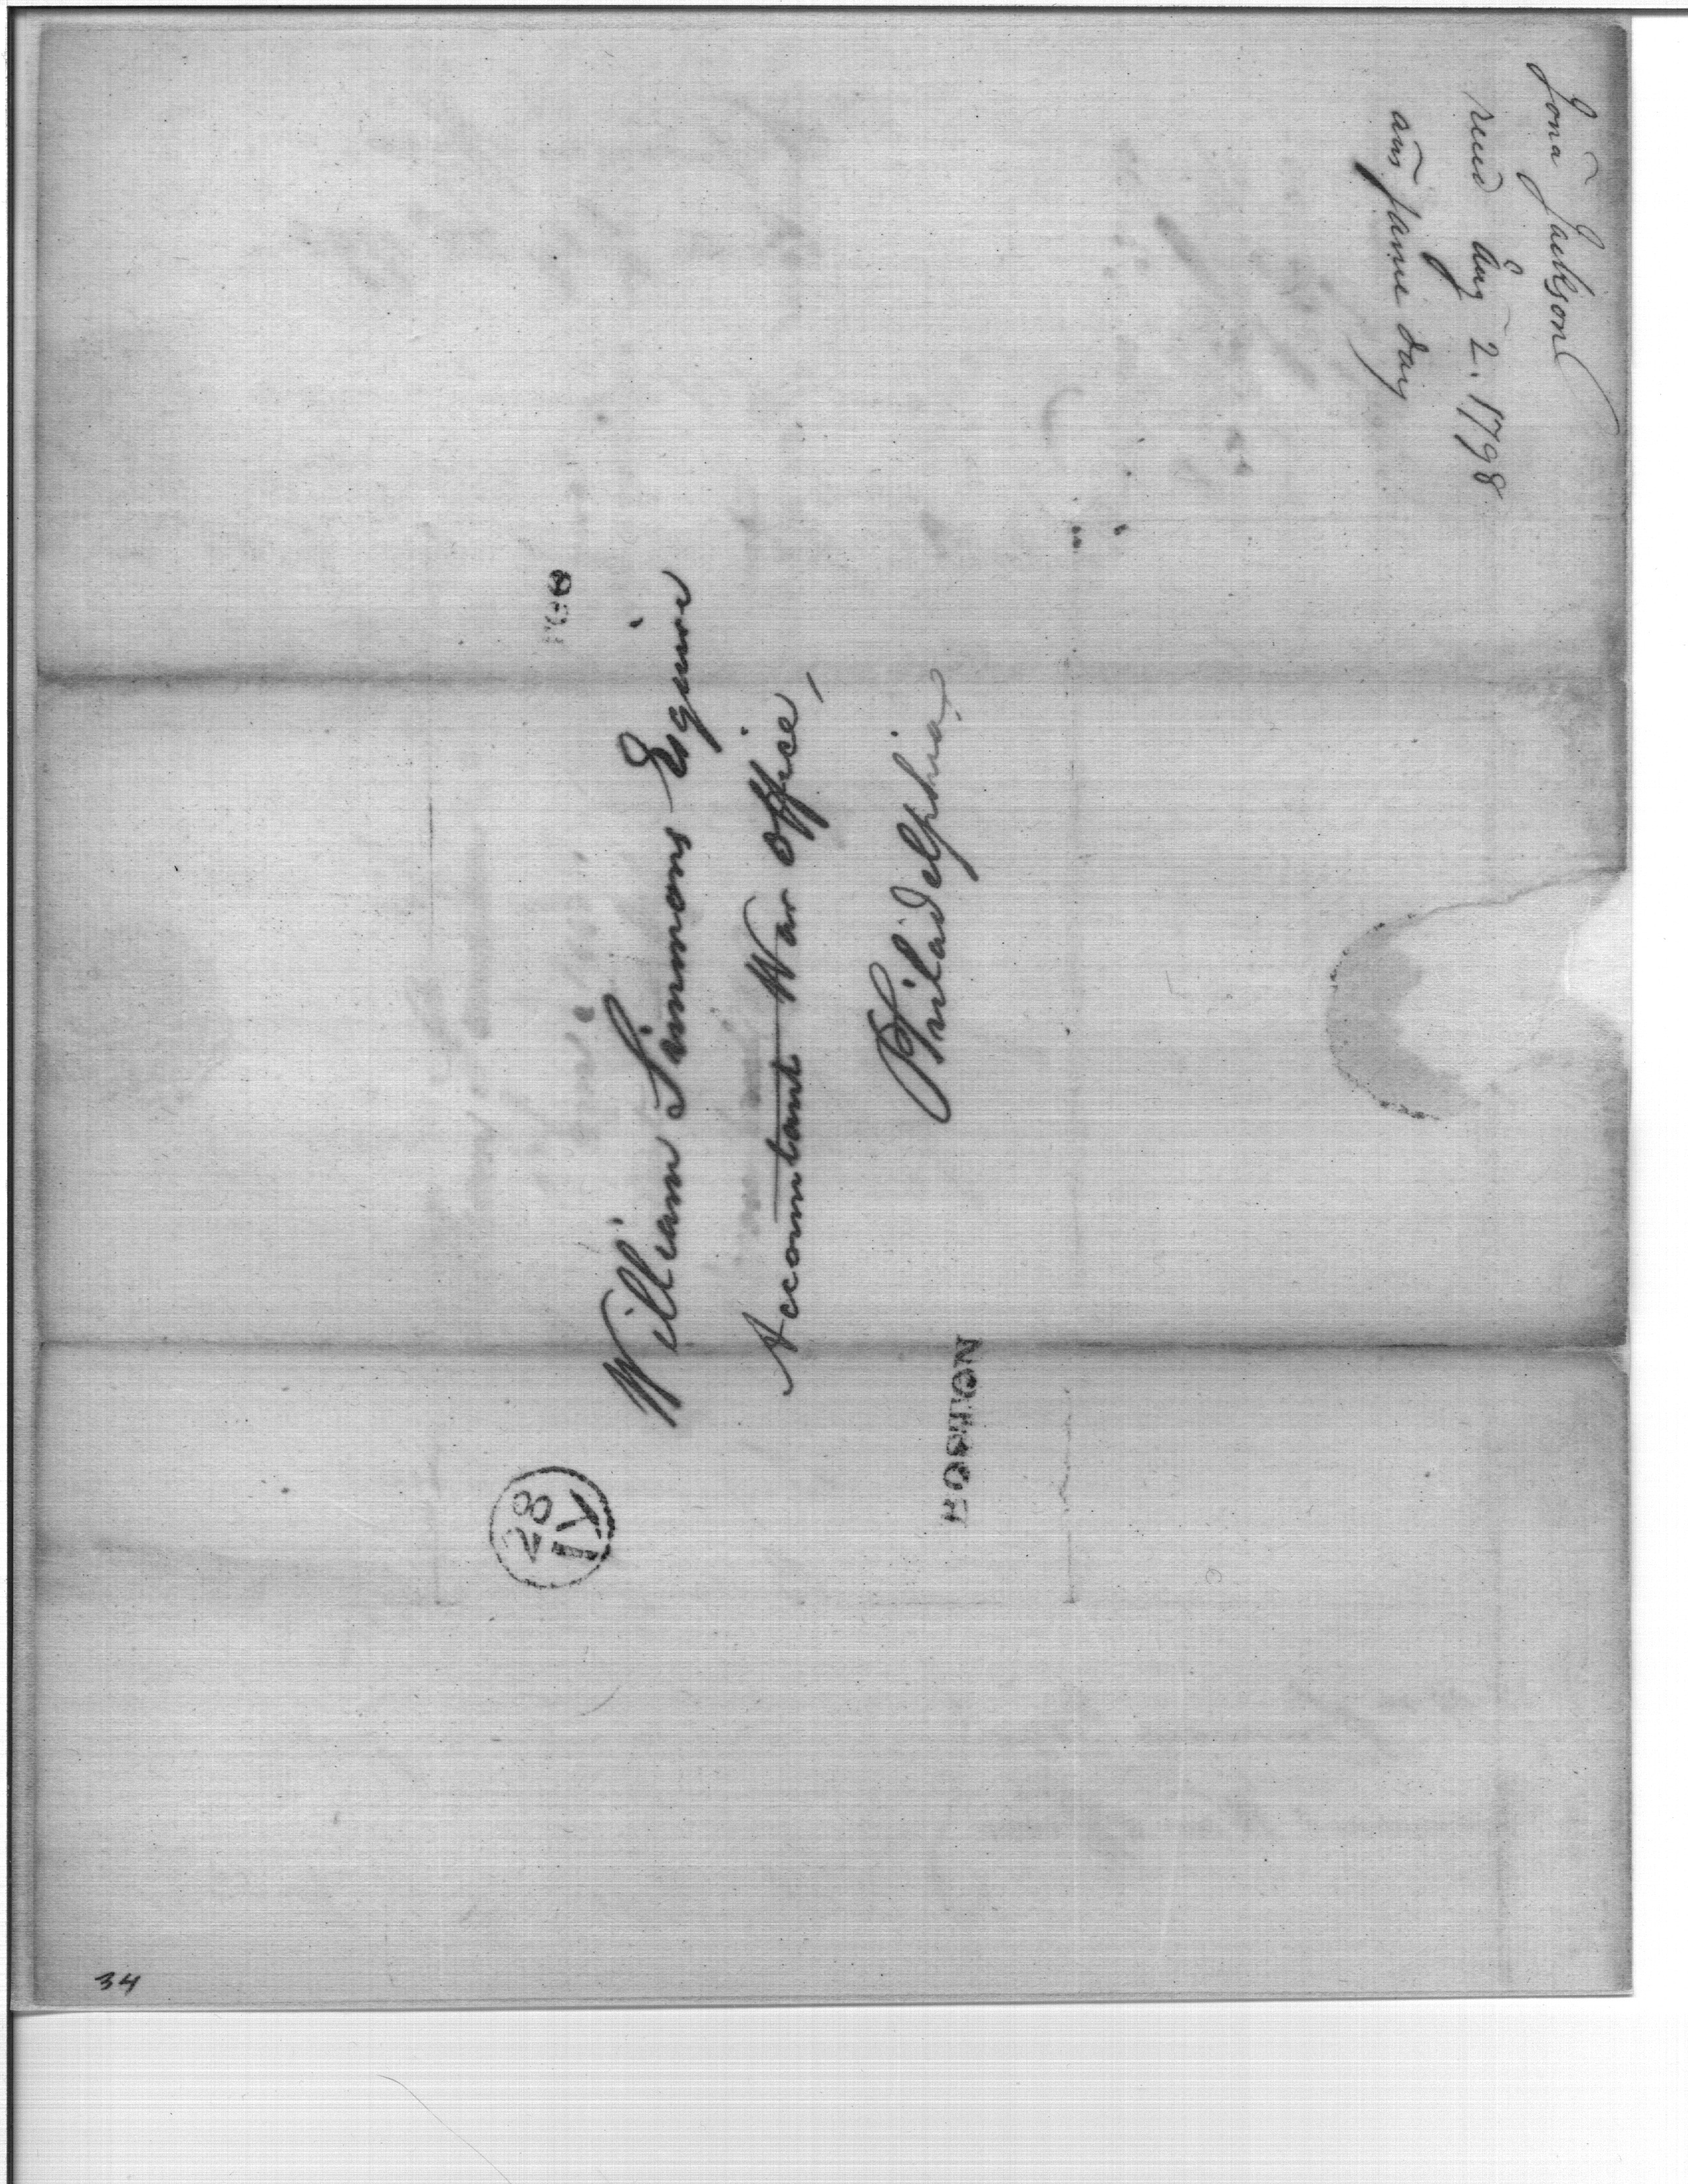 Jonᵃ Jackson
recd Aug 2. 1798
ans same day
William Simmons Esquire
Accountant War office,
Philadelphia
28
IY
34